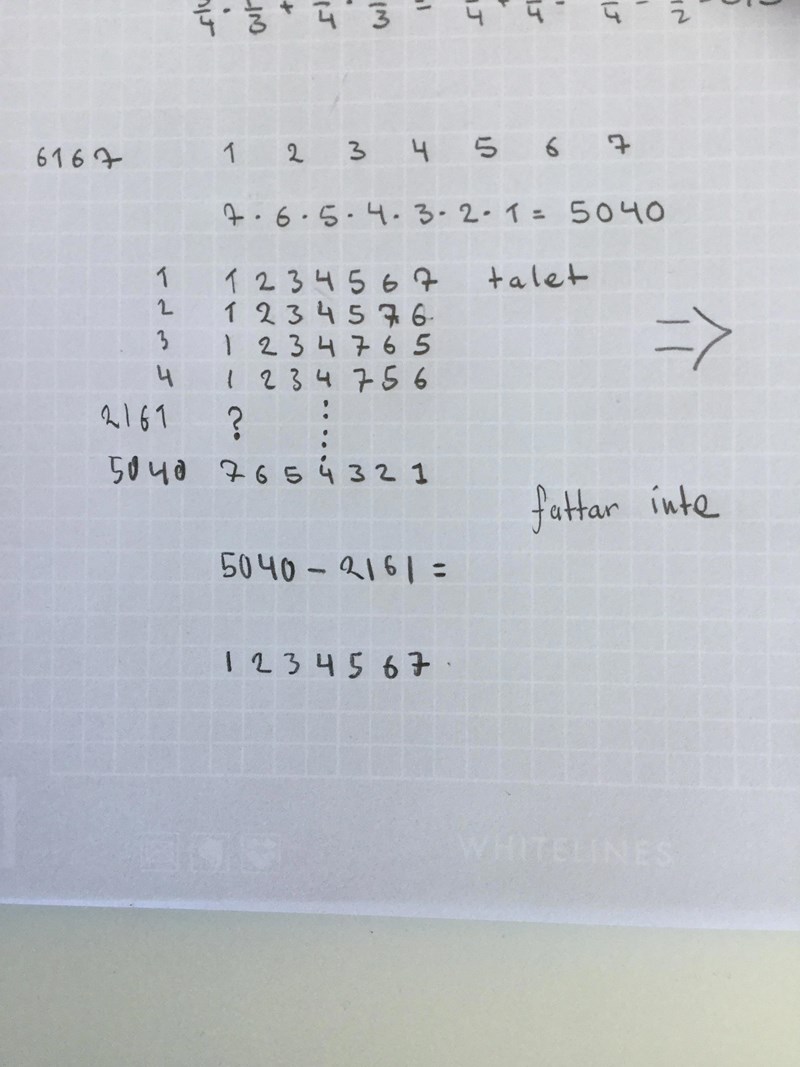 6167 1 2 3 4 5 6 7
7 · 6 · 5 · 4 · 3 · 2 · 1 = 5040
1 1 2 3 4 5 6 7 talet
2 1 2 3 4 5 7 6
3 1 2 3 4 7 6 5 ⇒
4 1 2 3 4 7 5 6
2161 ? ⋮
5040 7 6 5 4 3 2 1
fattar inte
5040 – 2161 =
1 2 3 4 5 6 7
WHITELINES